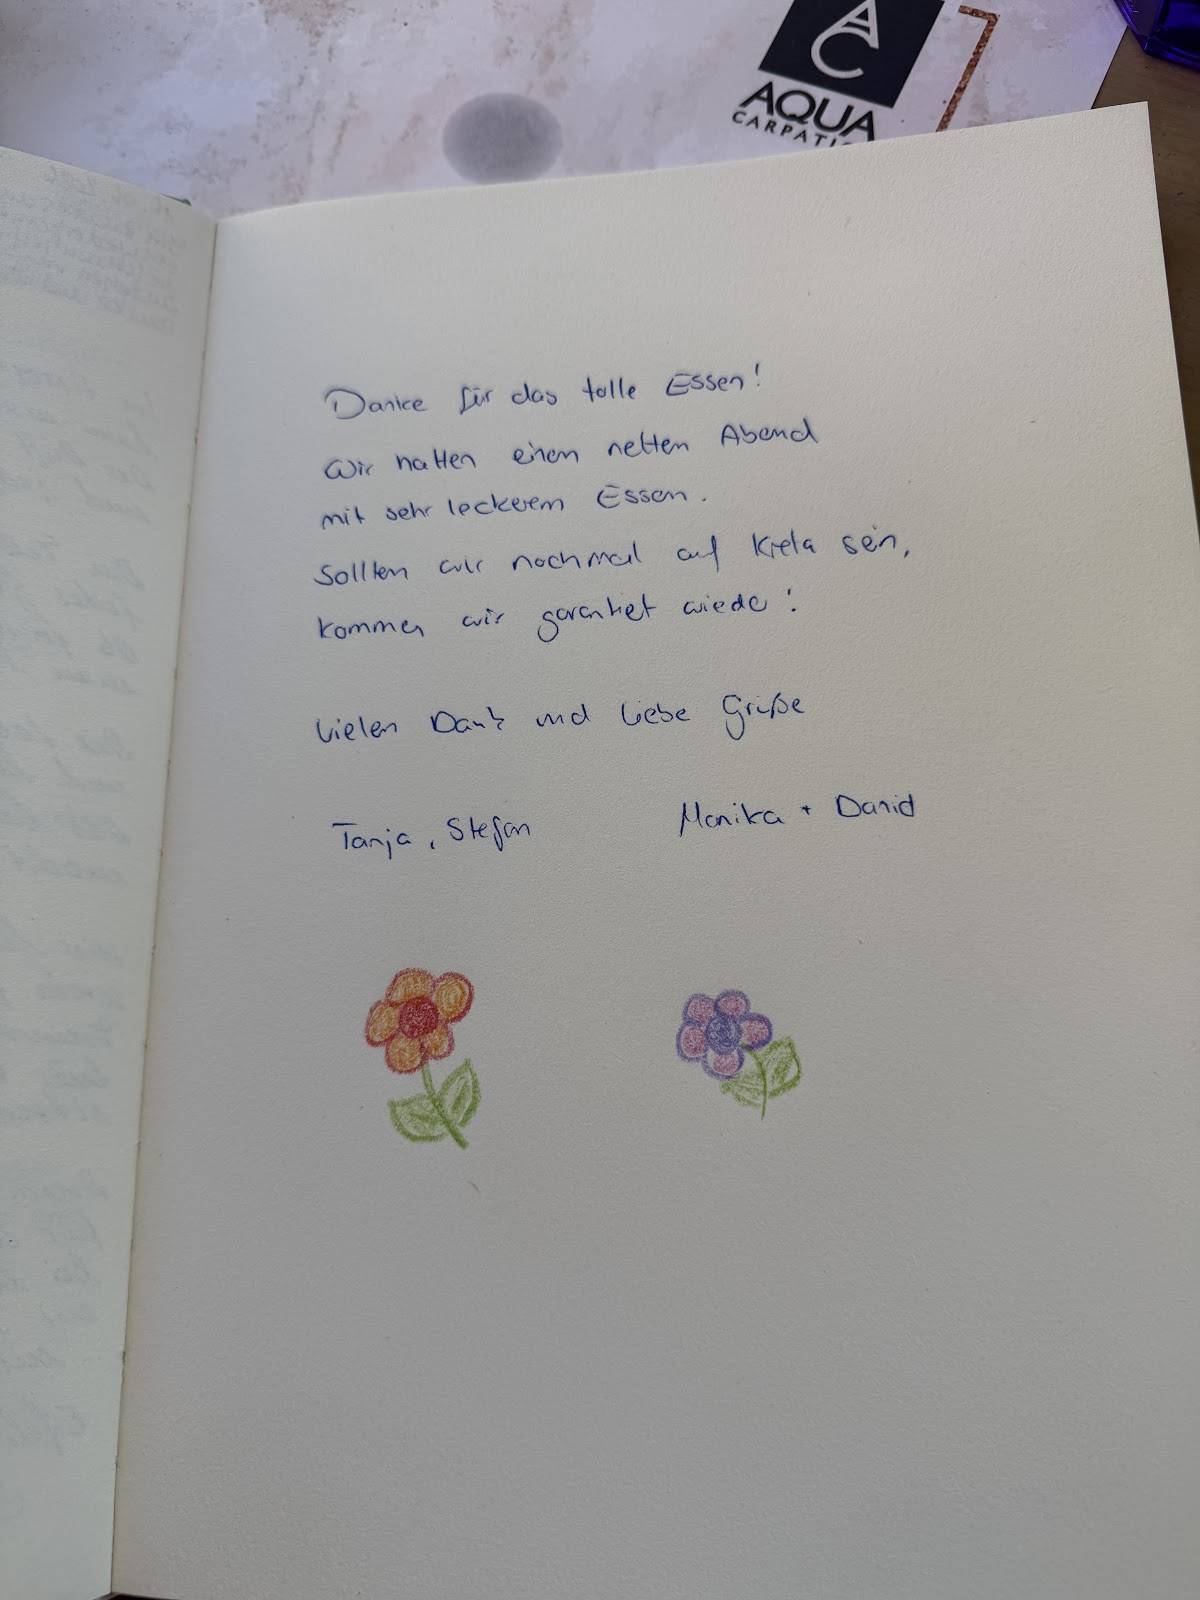 AC
AQUA
CARPATI
Danke für das tolle Essen!
Wir hatten einen netten Abend
mit sehr leckerem Essen.
Sollten wir nochmal auf Kreta sein,
kommen wir garantiert wieder!
Vielen Dank und liebe Grüße
Tanja, Stefan Monika + David